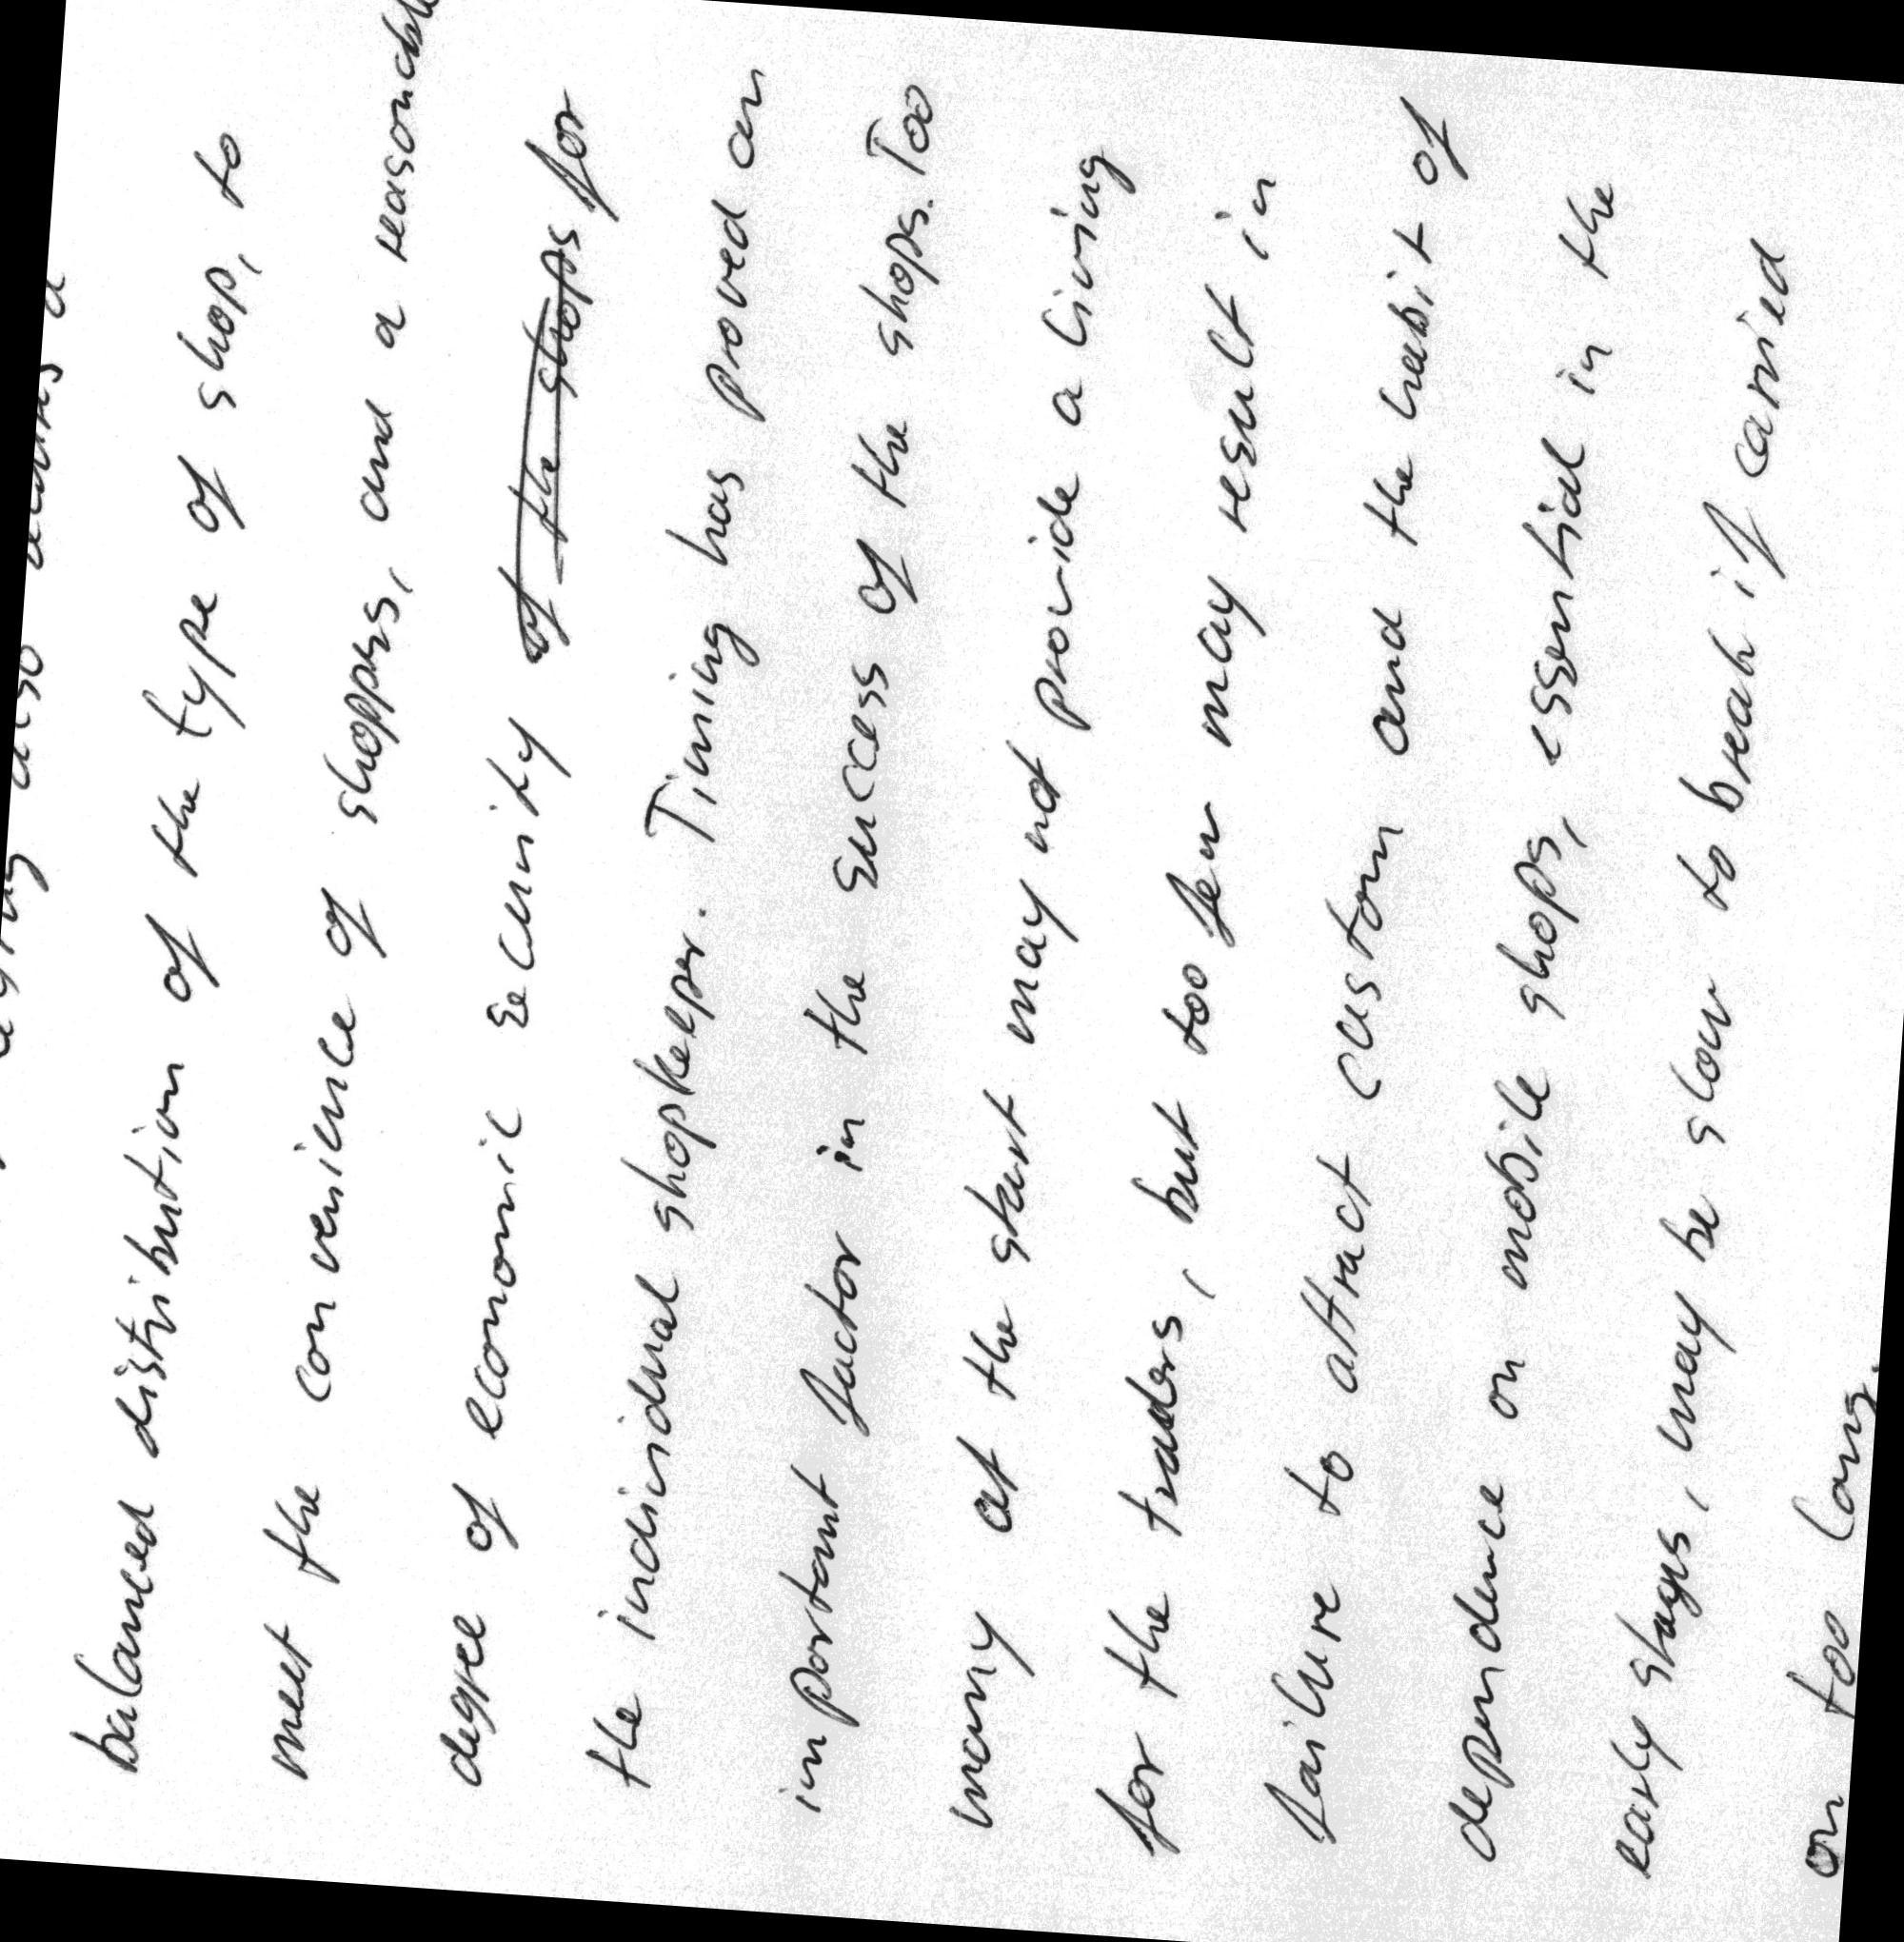 also
balanced distribution of the type of shop, to
meet the convenience of shoppers, and a reasonable
degree of economic security of the shops for
the individual shopkeeper. Timing has proved an
important factor in the success of the shops. Too
many at the start may not provide a living
for the traders, but too few may result in
failure to attract custom and the habit of
dependence on mobile shops, essential in the
early stages, may be slow to break if carried
on too long.